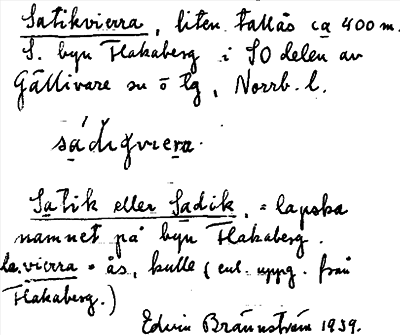 Satikvierra, liten tallås ca 400 m.
S. byn Flakaberg i SO delen av
Gällivare sn o tg, Norrb. l.
sádiǥviera.
Satik eller Sadik, = lapska
namnet på byn Flakaberg.
la. vierra = ås, kulle (enl. uppg. från
Flakaberg.)
Edvin Brännström 1939.